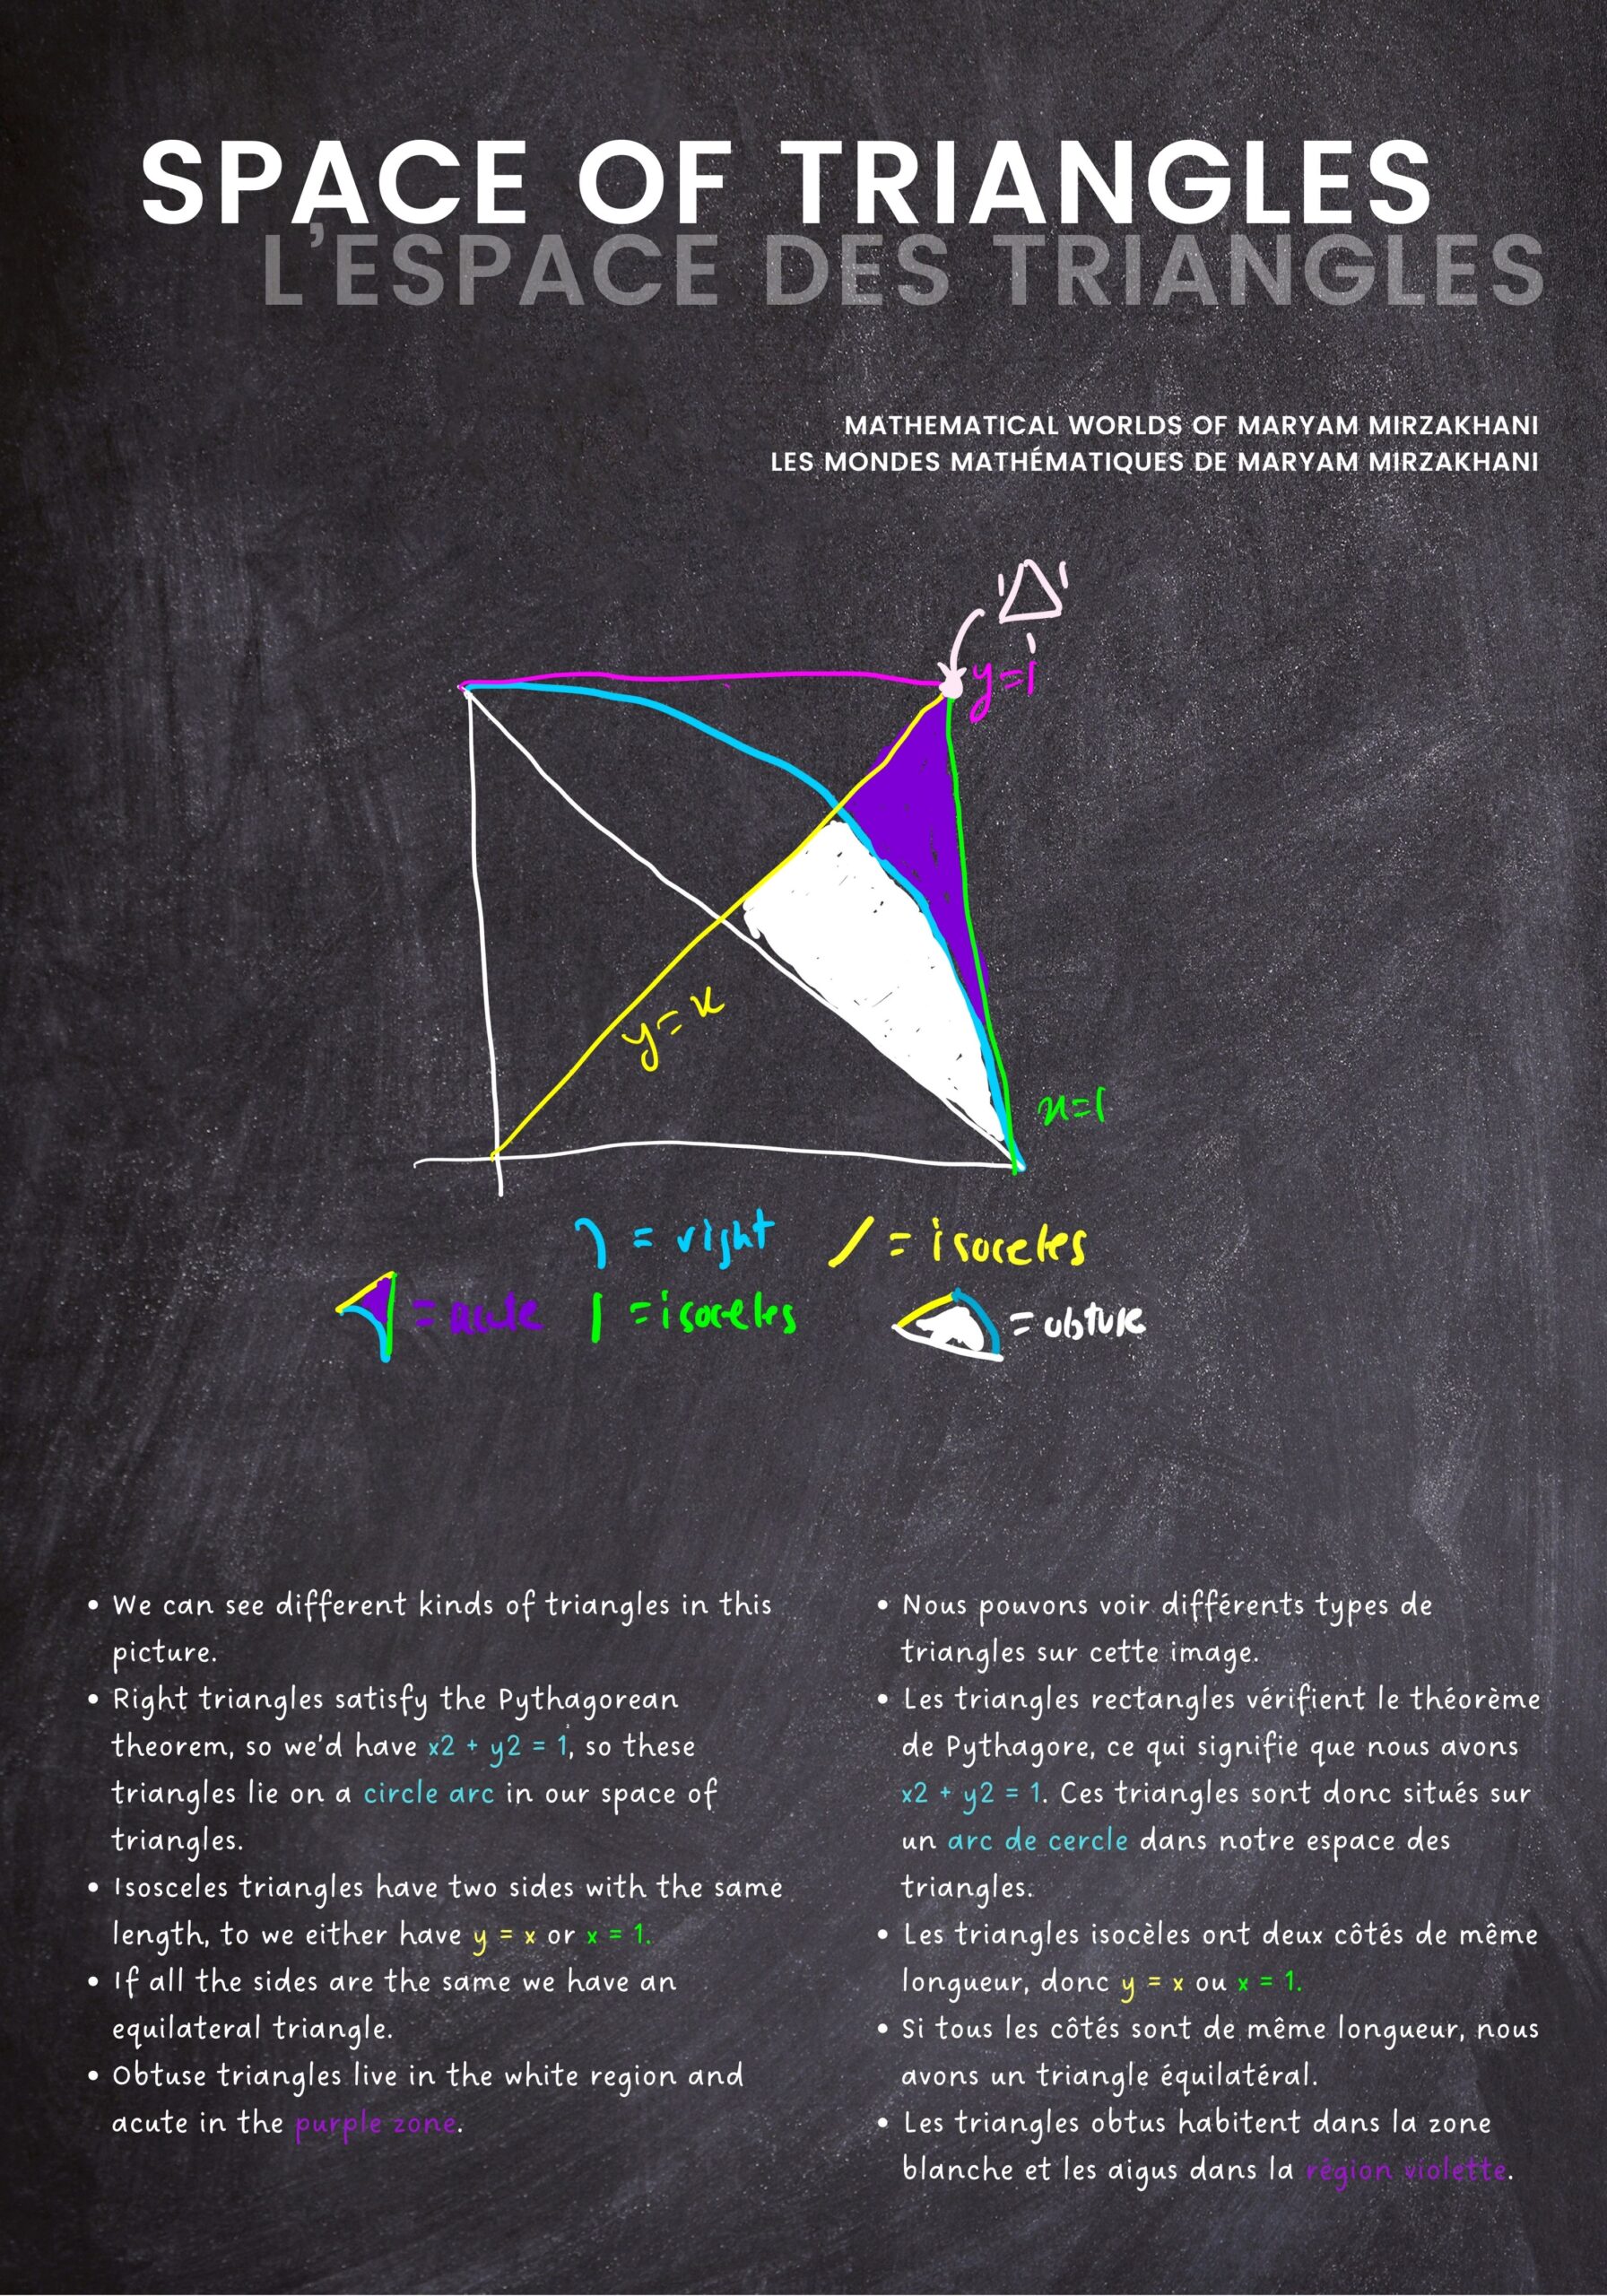 SPACE OF TRIANGLES
L'ESPACE DES TRIANGLES
MATHEMATICAL WORLDS OF MARYAM MIRZAKHANI
LES MONDES MATHÉMATIQUES DE MARYAM MIRZAKHANI
y=1
y=x
x=1
= right
= isoceles
= acute
= isoceles
= obtuse
• We can see different kinds of triangles in this
picture.
• Right triangles satisfy the Pythagorean
theorem, so we'd have x2 + y2 = 1, so these
triangles lie on a circle arc in our space of
triangles.
• Isosceles triangles have two sides with the same
length, to we either have y = x or x = 1.
• If all the sides are the same we have an
equilateral triangle.
• Obtuse triangles live in the white region and
acute in the purple zone.
• Nous pouvons voir différents types de
triangles sur cette image.
• Les triangles rectangles vérifient le théorème
de Pythagore, ce qui signifie que nous avons
x2 + y2 = 1. Ces triangles sont donc situés sur
un arc de cercle dans notre espace des
triangles.
• Les triangles isocèles ont deux côtés de même
longueur, donc y = x ou x = 1.
• Si tous les côtés sont de même longueur, nous
avons un triangle équilatéral.
• Les triangles obtus habitent dans la zone
blanche et les aigus dans la région violette.